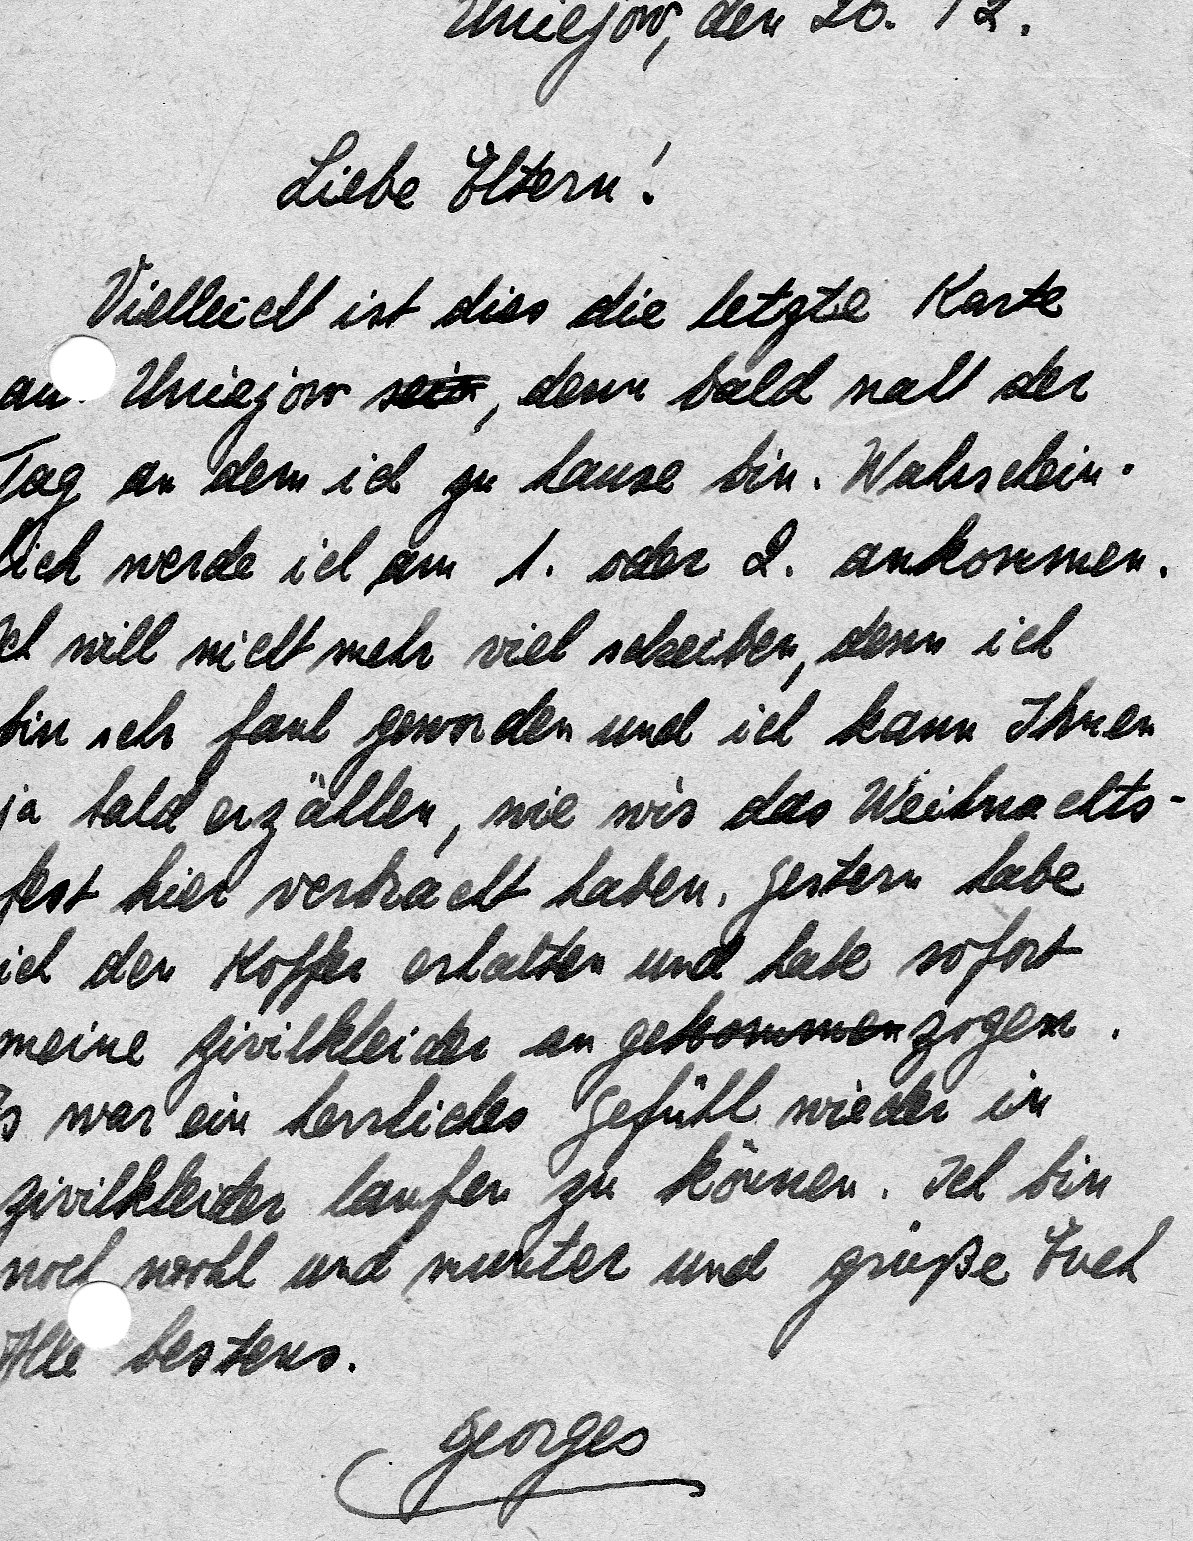 Uniejow, den 26. 12.
Liebe Eltern!
Vielleicht ist dies die letzte Karte
aus Uniejow sein, denn bald naht der
Tag an dem ich zu hause bin. Wahrschein-
lich werde ich am 1. oder 2. ankommen.
Ich will nicht mehr viel schreiben, denn ich
bin sehr faul geworden und ich kann Ihnen
ja bald erzählen, wie wir das Weihnachts-
fest hier verbracht haben. Gestern habe
ich den Koffer erhalten und habe sofort
meine Zivilkleider an gekommenzogen.
Es war ein herrliches Gefühl wieder in
Zivilkleider laufen zu können. Ich bin
noch wohl und munter und grüße Euch
Alle bestens.
Georges